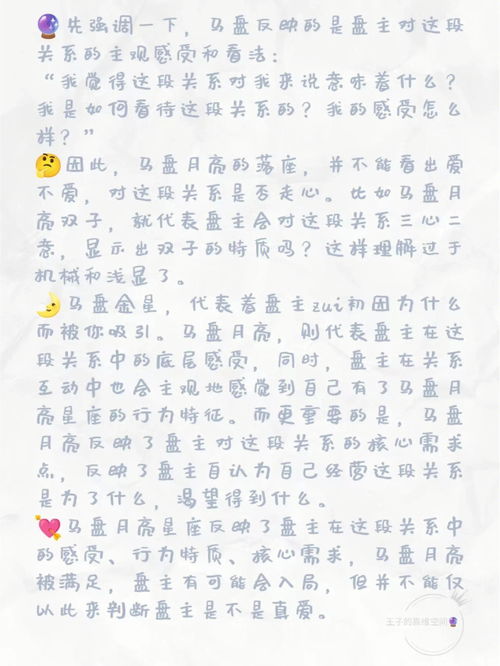 🔮先强调一下，马盘反映的是盘主对这段
关系的主观感受和看法：
“我觉得这段关系对我来说意味着什么？
我是如何看待这段关系的？我的感受怎么
样？”
🤔因此，马盘月亮的落座，并不能看出爱
不爱，对这段关系是否走心。比如马盘月
亮双子，就代表盘主会对这段关系三心二
意，显示出双子的特质吗？这样理解过于
机械和浅显了。
🌛马盘金星，代表着盘主zui初因为什么
而被你吸引。马盘月亮，则代表盘主在这
段关系中的底层感受，同时，盘主在关系
互动中也会主观地感觉到自己有了马盘月
亮星座的行为特征。而更重要的是，马盘
月亮反映了盘主对这段关系的核心需求
点，反映了盘主自认为自己经营这段关系
是为了什么，渴望得到什么。
💘马盘月亮星座反映了盘主在这段关系中
的感受、行为特质、核心需求，马盘月亮
被满足，盘主有可能会入局，但并不能仅
以此来判断盘主是不是真爱。
王子的高维空间🔮